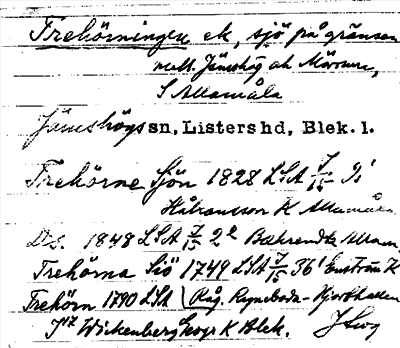 Trehörningen ek, sjö på gränsen
mell. Jämshög ok Mörrum,
S Allamåla
Jämshögs sn, Listers hd, Blek. l.
Trehörne Sjön 1828 LSA J/15 9'
Håkansson K Allamåla
Ds. 1848 LSA J/15 2e Bahrendtz Allam
Trehörna Siö 1749 LSA J/15 36' Enström K
Trehörn 1790 LSA Råg. Ryneboda-
J'17 Wickenberg K Blek.